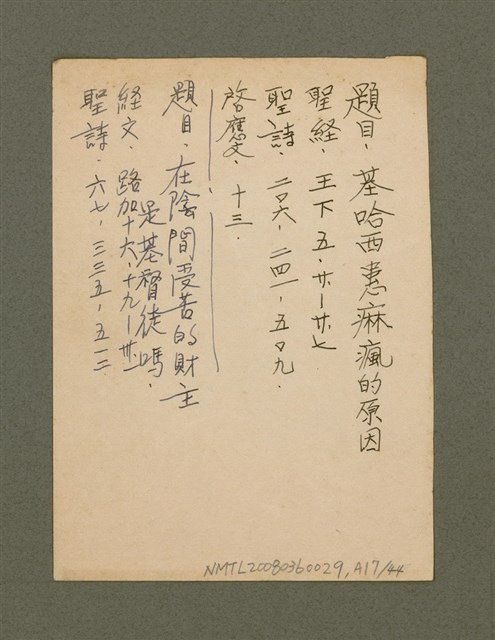 題目、基哈西患麻瘋的原因
聖経、王下五、廿-廿七
聖詩、二〇六、二四一、五〇九、
啓應文、十三、
題目、在陰間受苦的財主
是基督徒嗎、
経文、路加十六、十九-廿一
聖詩、六七、三三五、五一二
NMTL20080360029, A17/44